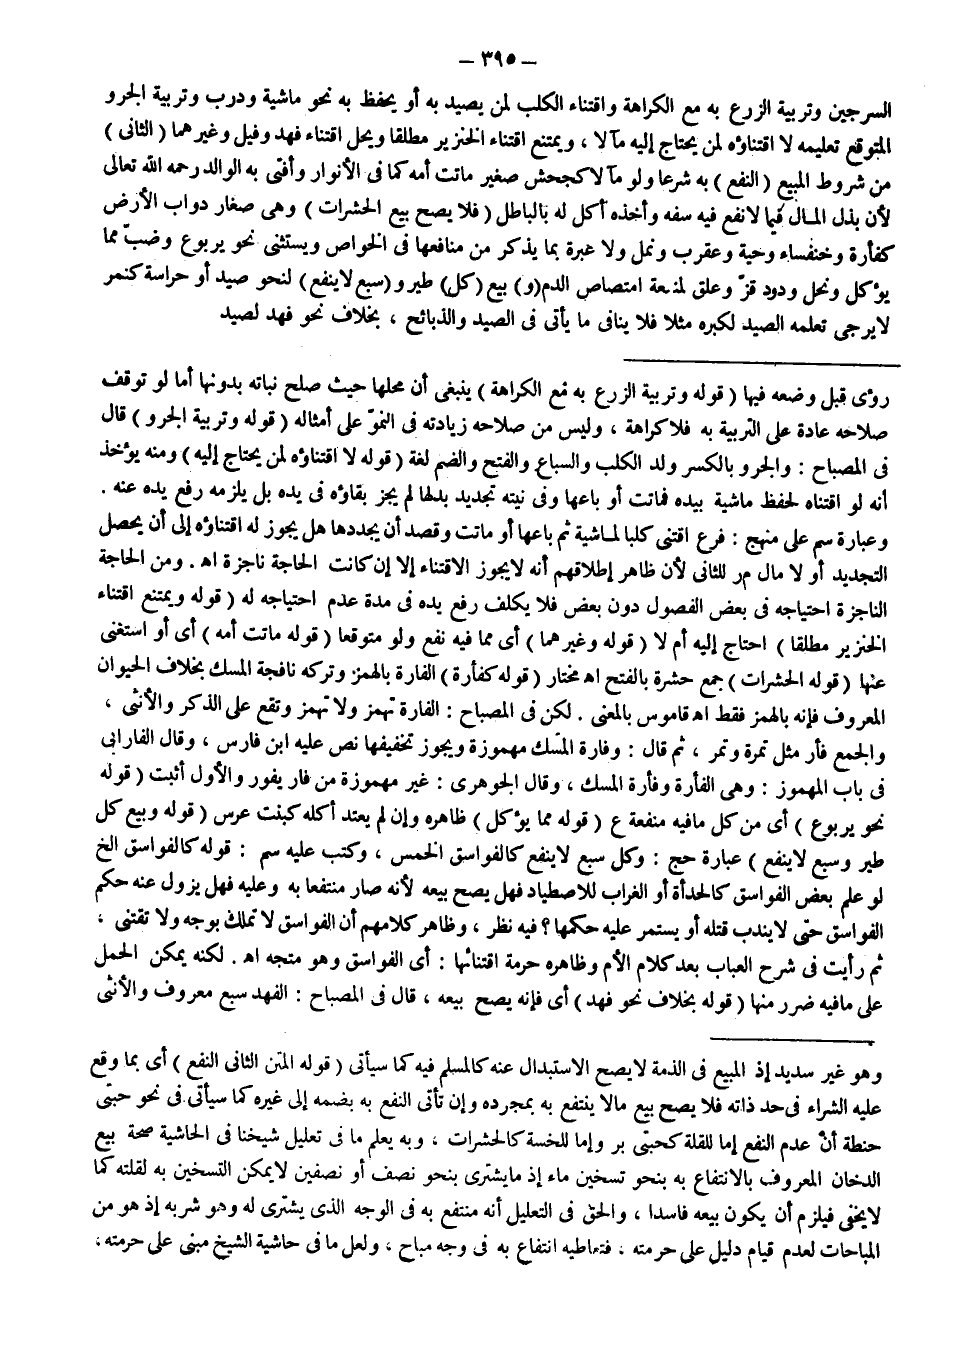 – ٣٩٥ –
السرجين وتربية الزرع به مع الكراهة واقتناء الكلب لمن يصيد به أو يحفظ به نحو ماشية ودرب وتربية الجرو
المتوقع تعليمه لا اقتناؤه لمن يحتاج إليه مآلا ، ويمتنع اقتناء الخنزير مطلقا ويحل اقتناء فهد وفيل وغيرهما ( الثانى )
من شروط المبيع ( النفع ) به شرعا ولو مآلا كجحش صغير ماتت أمه كما فى الأنوار وأفتى به الوالد رحمه الله تعالى
لأن بذل المال فيما لانفع فيه سفه وأخذه أكل له بالباطل ( فلا يصح بيع الحشرات ) وهى صغار دواب الأرض
كفأرة وخنفساء وحية وعقرب ونمل ولا عبرة بما يذكر من منافعها فى الخواص ويستثنى نحو يربوع وضبّ مما
يؤكل ونحل ودود قزّ وعلق لمنفعة امتصاص الدم(و) بيع (كل) طير و(سبع لاينفع) لنحو صيد أو حراسة كنمر
لايرجى تعلمه الصيد لكبره مثلا فلا ينافى ما يأتى فى الصيد والذبائح ، بخلاف نحو فهد لصيد
رؤى قبل وضعه فيها ( قوله وتربية الزرع به مع الكراهة ) ينبغى أن محلها حيث صلح نباته بدونها أما لو توقف
صلاحه عادة على التربية به فلا كراهة ، وليس من صلاحه زيادته فى النموّ على أمثاله ( قوله وتربية الجرو ) قال
فى المصباح : والجرو بالكسر ولد الكلب والسباع والفتح والضم لغة ( قوله لا اقتناؤه لمن يحتاج إليه ) ومنه يؤخذ
أنه لو اقتناه لحفظ ماشية بيده فماتت أو باعها وفى نيته تجديد بدلها لم يجز بقاؤه فى يده بل يلزمه رفع يده عنه .
وعبارة سم على منهج : فرع اقتنى كلبا لماشية ثم باعها أو ماتت وقصد أن يجددها هل يجوز له اقتناؤه إلى أن يحصل
التجديد أو لا مال مر للثانى لأن ظاهر إطلاقهم أنه لايجوز الاقتناء إلا إن كانت الحاجة ناجزة اه . ومن الحاجة
الناجزة احتياجه فى بعض الفصول دون بعض فلا يكلف رفع يده فى مدة عدم احتياجه له ( قوله ويمتنع اقتناء
الخنزير مطلقا ) احتاج إليه أم لا ( قوله وغيرهما ) أى مما فيه نفع ولو متوقعا ( قوله ماتت أمه ) أى أو استغنى
عنها ( قوله الحشرات ) جمع حشرة بالفتح اه مختار ( قوله كفأرة ) الفارة بالهمز وتركه نافجة المسك بخلاف الحيوان
المعروف فإنه بالهمز فقط اه قاموس بالمعنى . لكن فى المصباح : الفارة تهمز ولا تهمز وتقع على الذكر والأنثى ،
والجمع فأر مثل تمرة وتمر ، ثم قال : وفارة المسك مهموزة ويجوز تخفيفها نص عليه ابن فارس ، وقال الفارابى
فى باب المهموز : وهى الفأرة وفأرة المسك ، وقال الجوهرى : غير مهموزة من فار يفور والأول أثبت ( قوله
نحو يربوع ) أى من كل مافيه منفعة ع ( قوله مما يؤكل ) ظاهره وإن لم يعتد أكله كبنت عرس ( قوله وبيع كل
طير وسبع لاينفع ) عبارة حج : وكل سبع لاينفع كالفواسق الخمس ، وكتب عليه سم : قوله كالفواسق الخ
لو علم بعض الفواسق كالحدأة أو الغراب للاصطياد فهل يصح بيعه لأنه صار منتفعا به وعليه فهل يزول عنه حكم
الفواسق حتى لايندب قتله أو يستمر عليه حكمها ؟ فيه نظر ، وظاهر كلامهم أن الفواسق لا تملك بوجه ولا تقتنى ،
ثم رأيت فى شرح العباب بعد كلام الأم وظاهره حرمة اقتنائها : أى الفواسق وهو متجه اه . لكنه يمكن الحمل
على مافيه ضرر منها ( قوله بخلاف نحو فهد ) أى فإنه يصح بيعه ، قال فى المصباح : الفهد سبع معروف والأنثى
وهو غير سديد إذ المبيع فى الذمة لايصح الاستبدال عنه كالمسلم فيه كما سيأتى ( قوله المتن الثانى النفع ) أى بما وقع
عليه الشراء فى حد ذاته فلا يصح بيع مالا ينتفع به بمجرده وإن تأتى النفع به بضمه إلى غيره كما سيأتى فى نحو حبتى
حنطة أنّ عدم النفع إما للقلة كحبتى بر وإما للخسة كالحشرات ، وبه يعلم ما فى تعليل شيخنا فى الحاشية صحة بيع
الدخان المعروف بالانتفاع به بنحو تسخين ماء إذ مايشترى بنحو نصف أو نصفين لايمكن التسخين به لقلته كما
لايخفى فيلزم أن يكون بيعه فاسدا ، والحق فى التعليل أنه منتفع به فى الوجه الذى يشترى له وهو شربه إذ هو من
المباحات لعدم قيام دليل على حرمته ، فتعاطيه انتفاع به فى وجه مباح ، ولعل ما فى حاشية الشيخ مبنى على حرمته ،